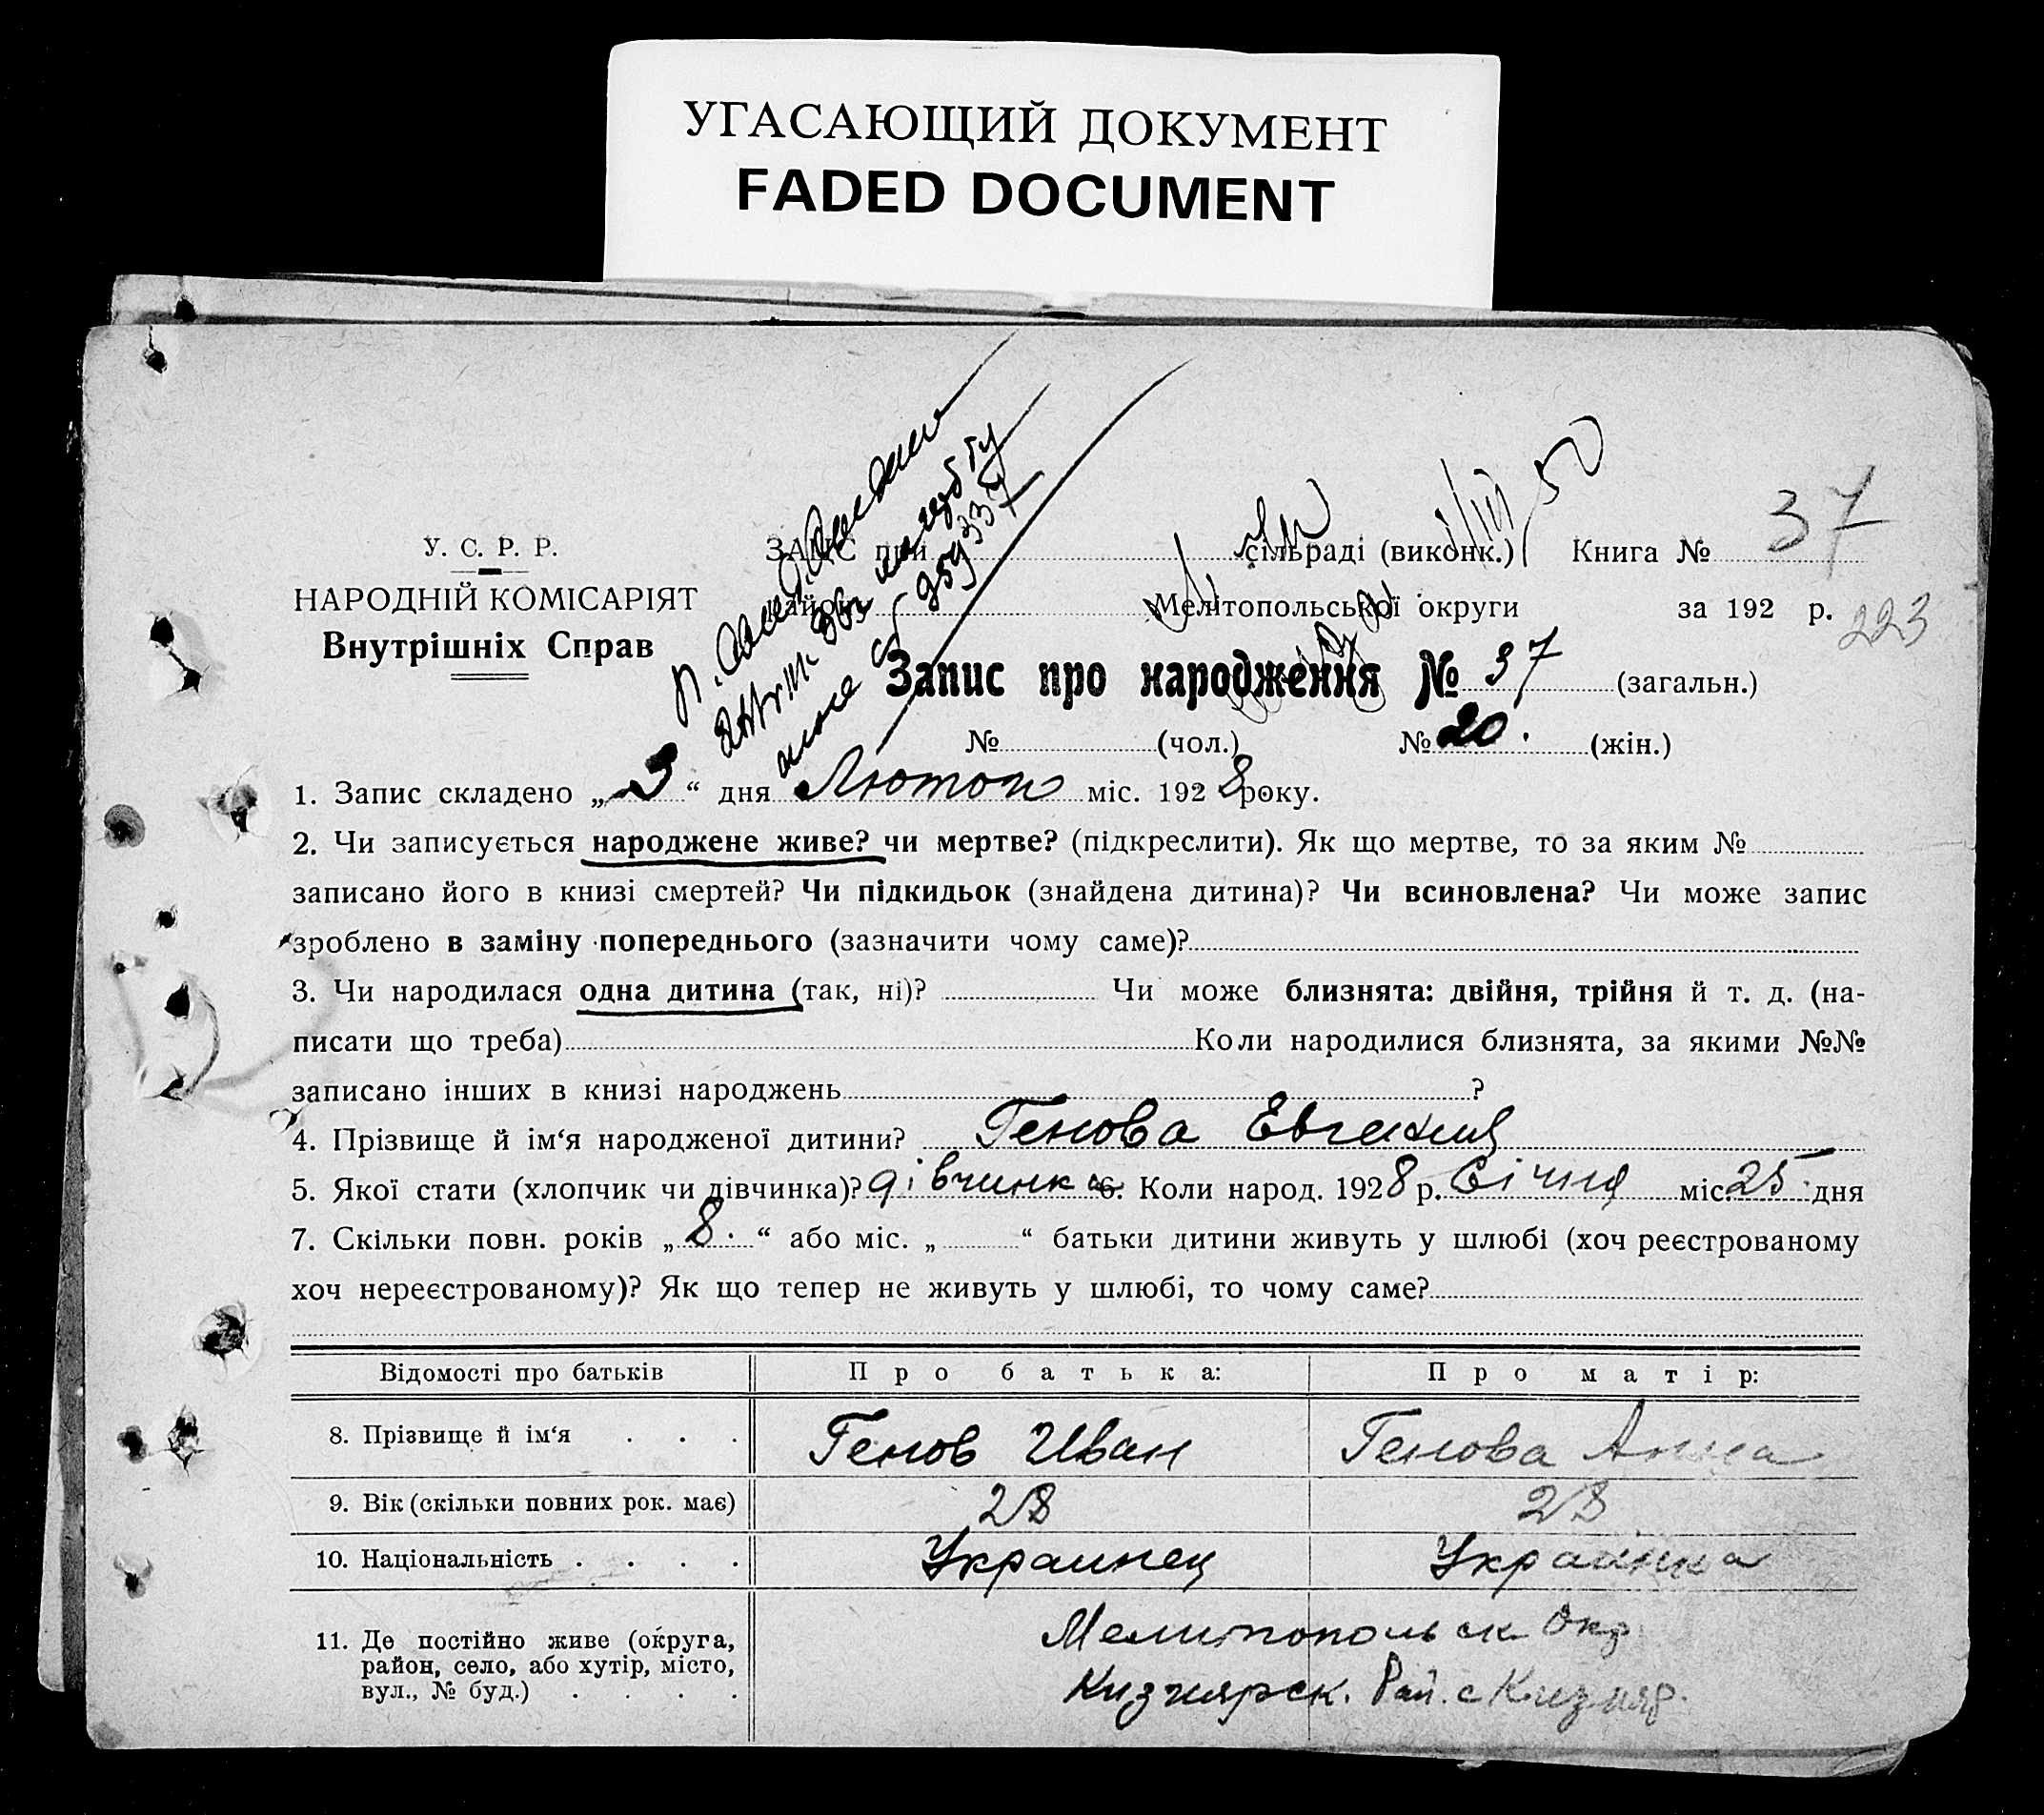 УГАСАЮЩИЙ ДОКУМЕНТ
FADED DOCUMENT
У. С. Р. Р.
НАРОДНІЙ КОМІСАРІЯТ
Внутрішніх Справ
ЗАПИС при сільраді (виконк.) Книга № 37
району Мелітопольської округи за 192 р.
223
50
Запис про народження № 37 (загальн.)
№ (чол.) № 20. (жін.)
1. Запис складено „3“ дня Лютого міс. 1928 року.
2. Чи записується народжене живе? чи мертве? (підкреслити). Як що мертве, то за яким №
записано його в книзі смертей? Чи підкидьок (знайдена дитина)? Чи всиновлена? Чи може запис
зроблено в заміну попереднього (зазначити чому саме)?
3. Чи народилася одна дитина (так, ні)? Чи може близнята: двійня, трійня й т. д. (на-
писати що треба) Коли народилися близнята, за якими №№
записано інших в книзі народжень ?
4. Прізвище й ім‘я народженої дитини? Генова Евгения
5. Якої стати (хлопчик чи дівчинка)? дівчинка 6. Коли народ. 1928 р. Січня міс. 25 дня
7. Скільки повн. років „8.“ або міс. „ “ батьки дитини живуть у шлюбі (хоч реєстрованому
хоч нереєстрованому)? Як що тепер не живуть у шлюбі, то чому саме?
Відомості про батьків Про батька: Про матір:
8. Прізвище й ім‘я . . . Генов Иван Генова Анна
9. Вік (скільки повних рок. має) 28 28
10. Національність . . . . Украинец Украинка
11. Де постійно живе (округа, Мелитопольск Окр
район, село, або хутір, місто, Кизиярск. Рай. с Кизияр.
вул., № буд.) . . . .